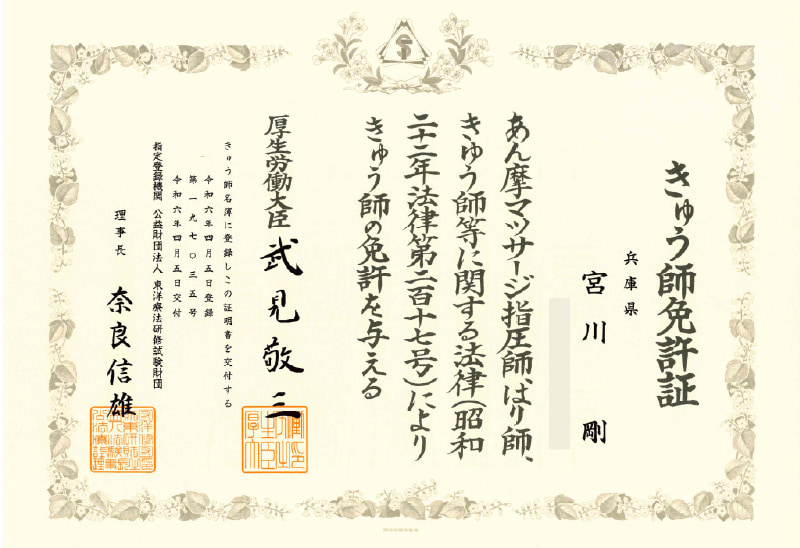 きゅう師免許証
兵庫県
宮川 剛
あん摩マッサージ指圧師、はり師、
きゅう師等に関する法律(昭和
二十二年法律第二百十七号)により
きゅう師の免許を与える
厚生労働大臣 武見敬三
きゅう師名簿に登録しこの証明書を交付する
令和六年四月五日登録
第一九七〇三五号
令和六年四月五日交付
指定登録機関 公益財団法人 東洋療法研修試験財団
理事長 奈良信雄